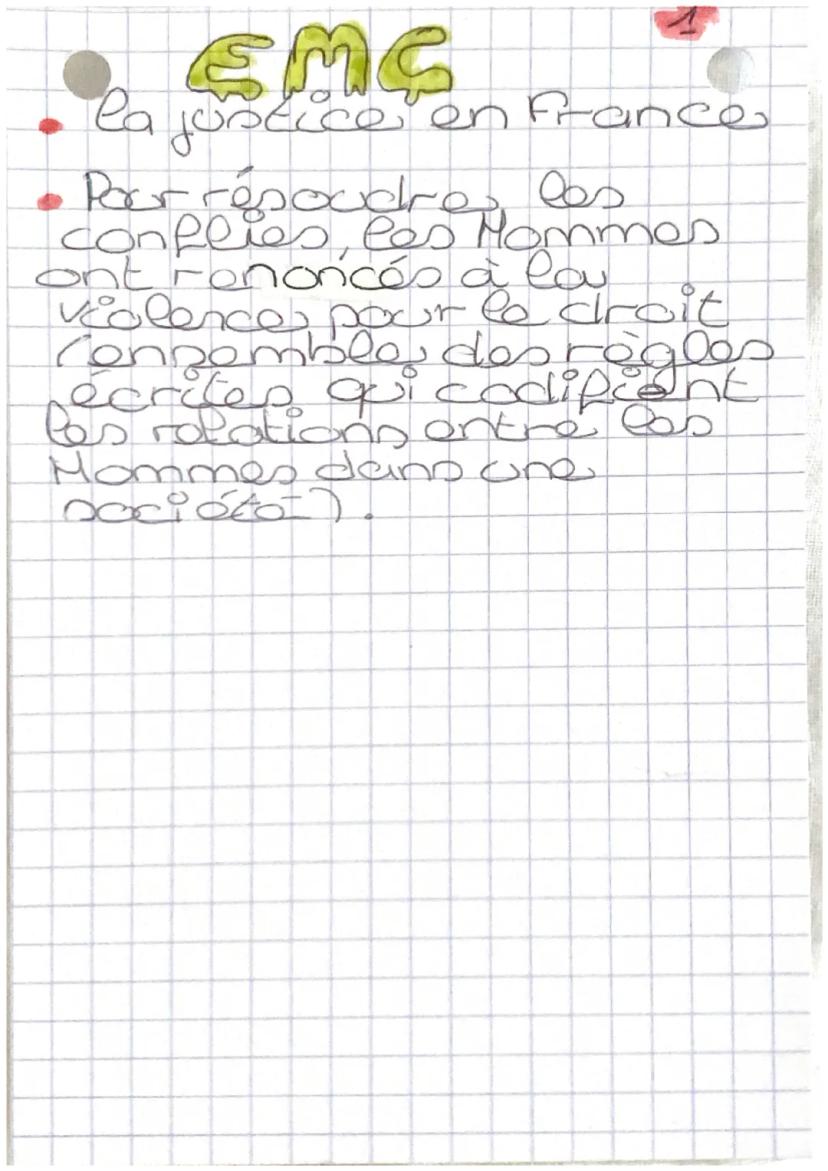 1
EMC
• la justice en France
• Pour résoudre les
conflies, les Hommes
ont renoncés à la
violence pour le droit
(ensemble des règles
écrites qui codifient
les relations entre les
Hommes dans une
société).